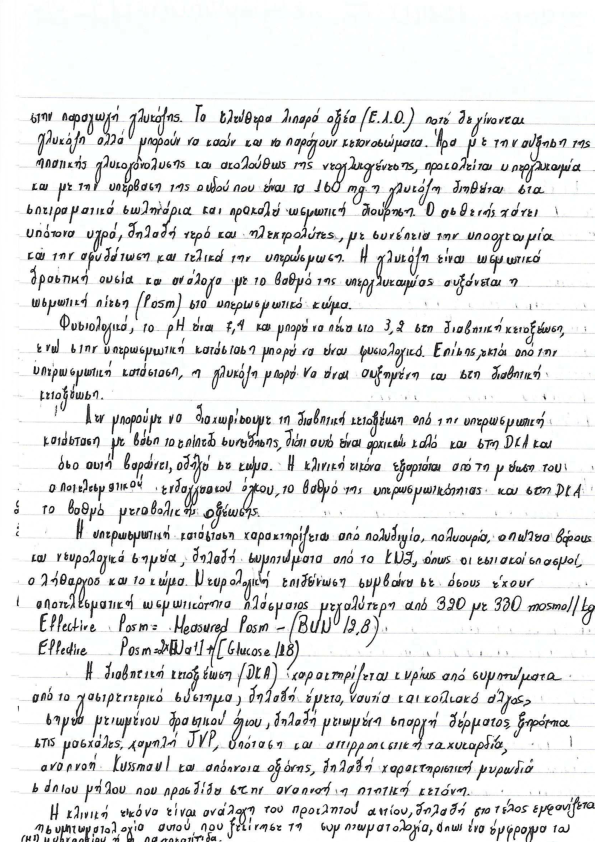 στην παραγωγή γλυκόζης. Τα ελεύθερα λιπαρά οξέα (Ε.Λ.Ο.) ποτέ δε γίνονται
γλυκόζη αλλά μπορούν να καούν και να παράγουν κετονοσώματα. Άρα με την αύξηση της
ηπατικής γλυκογονόλυσης και ακολούθως της νεογλυκογένεσης, προκαλείται υπεργλυκαιμία
και με την υπέρβαση της ουδού που είναι τα 160 mg η γλυκόζη διηθείται στα
σπειραματικά σωληνάρια και προκαλεί ωσμωτική διούρηση. Ο ασθενής χάνει
υπότονα υγρά, δηλαδή νερό και ηλεκτρολύτες, με συνέπεια την υποογκαιμία
και την αφυδάτωση και τελικά την υπερώσμωση. Η γλυκόζη είναι ωσμωτικά
δραστική ουσία και ανάλογα με το βαθμό της υπεργλυκαιμίας αυξάνεται η
ωσμωτική πίεση (Posm) στο υπερωσμωτικό κώμα.
Φυσιολογικά, το pH είναι 7,4 και μπορεί να πέσει στο 3,2 στη διαβητική κετοξέωση,
ενώ στην υπερωσμωτική κατάσταση μπορεί να είναι φυσιολογικό. Επίσης, εκτός από την
υπερωσμωτική κατάσταση, η γλυκόζη μπορεί να είναι αυξημένη και στη διαβητική
κετοξέωση.
Δεν μπορούμε να διαχωρίσουμε τη διαβητική κετοξέωση από την υπερωσμωτική
κατάσταση με βάση το επίπεδο συνείδησης, διότι αυτό είναι αρχικώς καλό και στη DKA και
όσο αυτή βαραίνει, οδηγεί σε κώμα. Η κλινική εικόνα εξαρτάται από τη μείωση του
αποτελεσματικού ενδαγγειακού όγκου, το βαθμό της υπερωσμωτικότητας και στη DKA
το βαθμό μεταβολικής οξέωσης.
Η υπερωσμωτική κατάσταση χαρακτηρίζεται από πολυδιψία, πολυουρία, απώλεια βάρους
και νευρολογικά σημεία, δηλαδή συμπτώματα από το ΚΝΣ, όπως οι εστιακοί σπασμοί,
ο λήθαργος και το κώμα. Νευρολογική επιδείνωση συμβαίνει σε όσους έχουν
αποτελεσματική ωσμωτικότητα πλάσματος μεγαλύτερη από 320 με 330 mosmol/kg
Effective Posm= Measured Posm - (BUN/2,8)
Effective Posm=2x[Na]+[Glucose/18]
Η διαβητική κετοξέωση (DKA) χαρακτηρίζεται κυρίως από συμπτώματα
από το γαστρεντερικό σύστημα, δηλαδή έμετο, ναυτία και κοιλιακό άλγος,
σημεία μειωμένου δραστικού όγκου, δηλαδή μειωμένη σπαργή δέρματος, ξηρότητα
στις μασχάλες, χαμηλή JVP, υπόταση και αντιρροπιστική ταχυκαρδία,
αναπνοή Kussmaul και απόπνοια οξόνης, δηλαδή χαρακτηριστική μυρωδιά
σάπιου μήλου που προσδίδει στην αναπνοή η πτητική κετόνη.
Η κλινική εικόνα είναι ανάλογη του προκλητού αιτίου, δηλαδή στο τέλος εμφανίζεται
η συμπτωματολογία αυτού που ξεκίνησε τη συμπτωματολογία, όπως ένα έμφραγμα του
μυοκαρδίου ή η παγκρεατίτιδα.